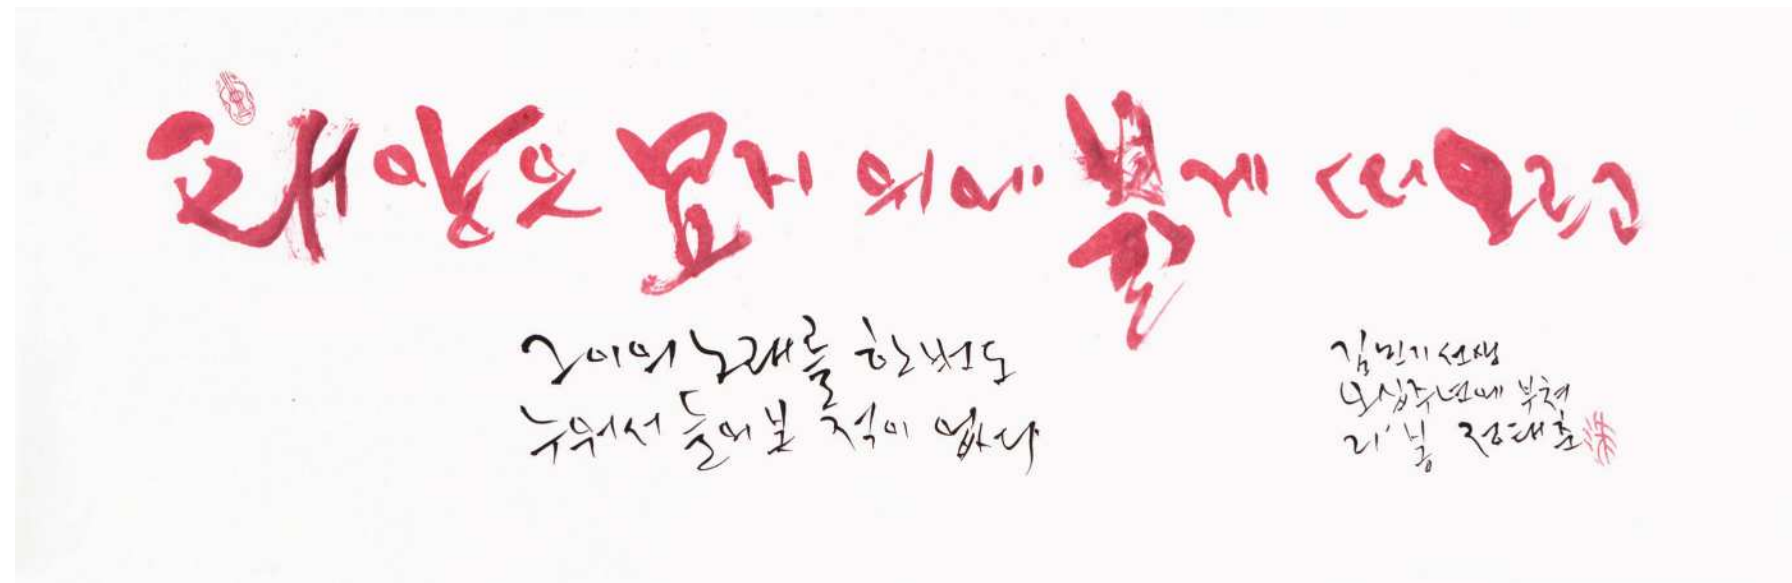 태양은 묘지 위에 붉게 떠오르고
그이의 노래를 한번도
누워서 들어본 적이 없다
김민기 선생
오십주년에 부쳐
21' 봄 정태춘